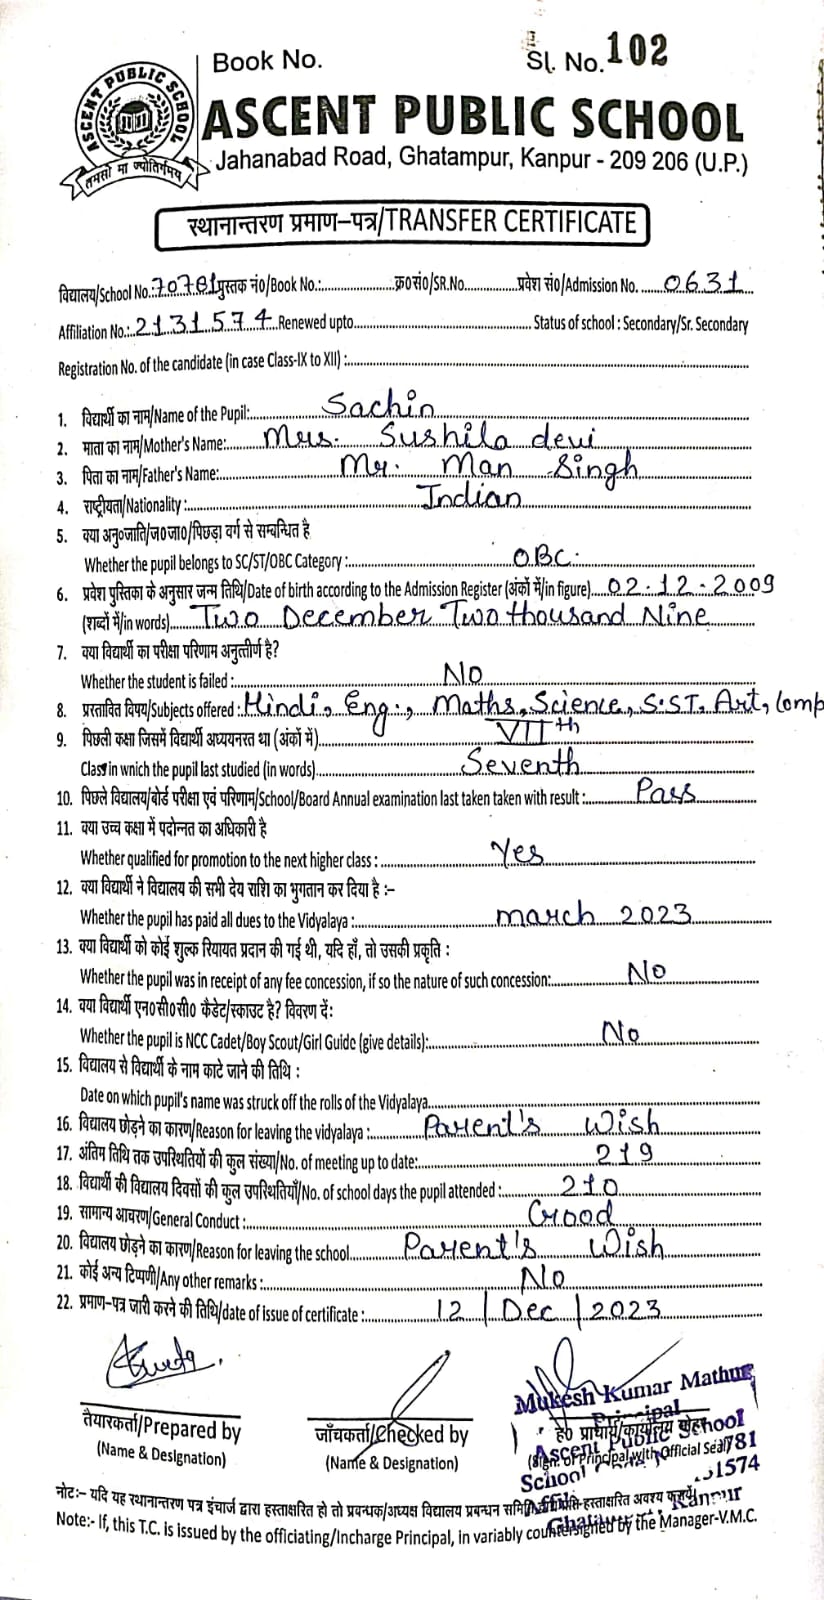 Book No.
Sl. No. 102
ASCENT PUBLIC SCHOOL
तमसो मा ज्योतिर्गमय
ASCENT PUBLIC SCHOOL
Jahanabad Road, Ghatampur, Kanpur - 209 206 (U.P.)
स्थानान्तरण प्रमाण-पत्र/TRANSFER CERTIFICATE
विद्यालय/School No.: 70781 पुस्तक नं०/Book No.: क्र०सं०/SR.No. प्रवेश सं०/Admission No. 0631
Affiliation No.: 2131574 Renewed upto Status of school : Secondary/Sr. Secondary
Registration No. of the candidate (in case Class-IX to XII) :
1. विद्यार्थी का नाम/Name of the Pupil: Sachin
2. माता का नाम/Mother's Name: Mrs. Sushila devi
3. पिता का नाम/Father's Name: Mr. Man Singh
4. राष्ट्रीयता/Nationality : Indian
5. क्या अनु०जाति/ज०जा०/पिछड़ा वर्ग से सम्बन्धित है
Whether the pupil belongs to SC/ST/OBC Category : OBC.
6. प्रवेश पुस्तिका के अनुसार जन्म तिथि/Date of birth according to the Admission Register (अंकों में/in figure) 02.12.2009
(शब्दों में/in words) Two December Two thousand Nine
7. क्या विद्यार्थी का परीक्षा परिणाम अनुत्तीर्ण है?
Whether the student is failed : No
8. प्रस्तावित विषय/Subjects offered : Hindi, Eng., Maths, Science, S.ST, Art, Comp
9. पिछली कक्षा जिसमें विद्यार्थी अध्ययनरत था (अंकों में) VIIth
Class in wnich the pupil last studied (in words) Seventh
10. पिछले विद्यालय/बोर्ड परीक्षा एवं परिणाम/School/Board Annual examination last taken taken with result : Pass
11. क्या उच्च कक्षा में पदोन्नत का अधिकारी है
Whether qualified for promotion to the next higher class : Yes
12. क्या विद्यार्थी ने विद्यालय की सभी देय राशि का भुगतान कर दिया है :-
Whether the pupil has paid all dues to the Vidyalaya : march 2023
13. क्या विद्यार्थी को कोई शुल्क रियायत प्रदान की गई थी, यदि हाँ, तो उसकी प्रकृति :
Whether the pupil was in receipt of any fee concession, if so the nature of such concession: No
14. क्या विद्यार्थी एन०सी०सी० कैडेट/स्काउट है? विवरण दें:
Whether the pupil is NCC Cadet/Boy Scout/Girl Guide (give details): No
15. विद्यालय से विद्यार्थी के नाम काटे जाने की तिथि :
Date on which pupil's name was struck off the rolls of the Vidyalaya
16. विद्यालय छोड़ने का कारण/Reason for leaving the vidyalaya : Parent's Wish
17. अंतिम तिथि तक उपस्थितियों की कुल संख्या/No. of meeting up to date: 219
18. विद्यार्थी की विद्यालय दिवसों की कुल उपस्थितियाँ/No. of school days the pupil attended : 210
19. सामान्य आचरण/General Conduct : Good
20. विद्यालय छोड़ने का कारण/Reason for leaving the school Parent's Wish
21. कोई अन्य टिप्पणी/Any other remarks : No
22. प्रमाण-पत्र जारी करने की तिथि/date of issue of certificate : 12/Dec/2023
Mukesh Kumar Mathur
Principal
Ascent Public School
School 781
1574
Kanpur
तैयारकर्ता/Prepared by
(Name & Designation)
जाँचकर्ता/Checked by
(Name & Designation)
(Sign. of Principal with Official Seal)
नोट:- यदि यह स्थानान्तरण पत्र इंचार्ज द्वारा हस्ताक्षरित हो तो प्रबन्धक/अध्यक्ष विद्यालय प्रबन्धन समिति हस्ताक्षरित अवश्य करायें।
Note:- If, this T.C. is issued by the officiating/Incharge Principal, in variably countersigned by the Manager-V.M.C.